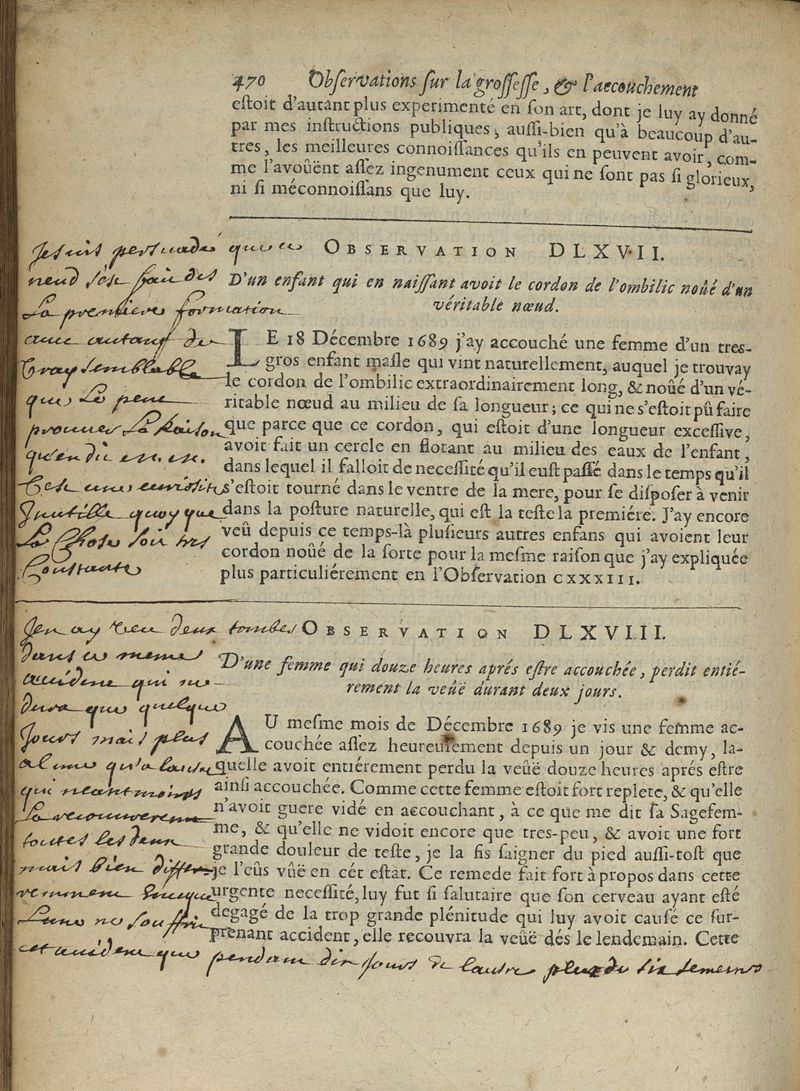 470 Observations sur la grossesse, & l'accouchement
estoit d'autant plus experimenté en son art, dont je luy ay donné
par mes instructions publiques, aussi-bien qu'à beaucoup d'au-
tres, les meilleures connoissances qu'ils en peuvent avoir, com-
me l'avoüent assez ingenument ceux qui ne sont pas si glorieux,
ni si méconnoissans que luy.
OBSERVATION DLXVII.
D'un enfant qui en naissant avoit le cordon de l'ombilic noüé d'un
véritable nœud.
LE 18 Décembre 1689 j'ay accouché une femme d'un tres-
gros enfant masle qui vint naturellement, auquel je trouvay
le cordon de l'ombilic extraordinairement long, & noüé d'un vé-
ritable nœud au milieu de sa longueur; ce qui ne s'estoit pû faire
que parce que ce cordon, qui estoit d'une longueur excessive,
avoit fait un cercle en flotant au milieu des eaux de l'enfant,
dans lequel il falloit de necessité qu'il eust passé dans le temps qu'il
s'estoit tourné dans le ventre de la mere, pour se disposer à venir
dans la posture naturelle, qui est la teste la premiére. J'ay encore
veû depuis ce temps-là plusieurs autres enfans qui avoient leur
cordon noüé de la sorte pour la mesme raison que j'ay expliquée
plus particuliérement en l'Observation CXXXIII.
Je suis persuadé que ce
neud s'est fait des
La premiere formation
avec autant de
vray semblable
que le peut
prouver la Raison
qu'en dit
C'est une curiosité
Inutille quoy que
La Chose soit tres
Constante
OBSERVATION DLXVIII.
D'une femme qui douze heures aprés estre accouchée, perdit entié-
rement la veüë durant deux jours.
AU mesme mois de Décembre 1689 je vis une femme ac-
couchée assez heureusement depuis un jour & demy, la-
quelle avoit entiérement perdu la veüë douze heures aprés estre
ainsi accouchée. Comme cette femme estoit fort replete, & qu'elle
n'avoit guere vidé en accouchant, à ce que me dit sa Sagefem-
me, & qu'elle ne vidoit encore que tres-peu, & avoit une fort
grande douleur de teste, je la fis saigner du pied aussi-tost que
je l'eûs vûë en cét estat. Ce remede fait fort à propos dans cette
urgente necessité, luy fut si salutaire que son cerveau ayant esté
dégagé de la trop grande plénitude qui luy avoit causé ce sur-
prenant accident, elle recouvra la veüë dés le lendemain. Cette
J'en ay veu deux tombés
dans ce meme
accident qui ne
dura que quelque
Jours mais plus
a l'une qu'a l'autre
qui neantmoins
La recouvrerent
toutes les deux
mais bien differe-
ment
L'une ne souffrit
cet accident que pendant dix Jours et l'autre plus de six semaines